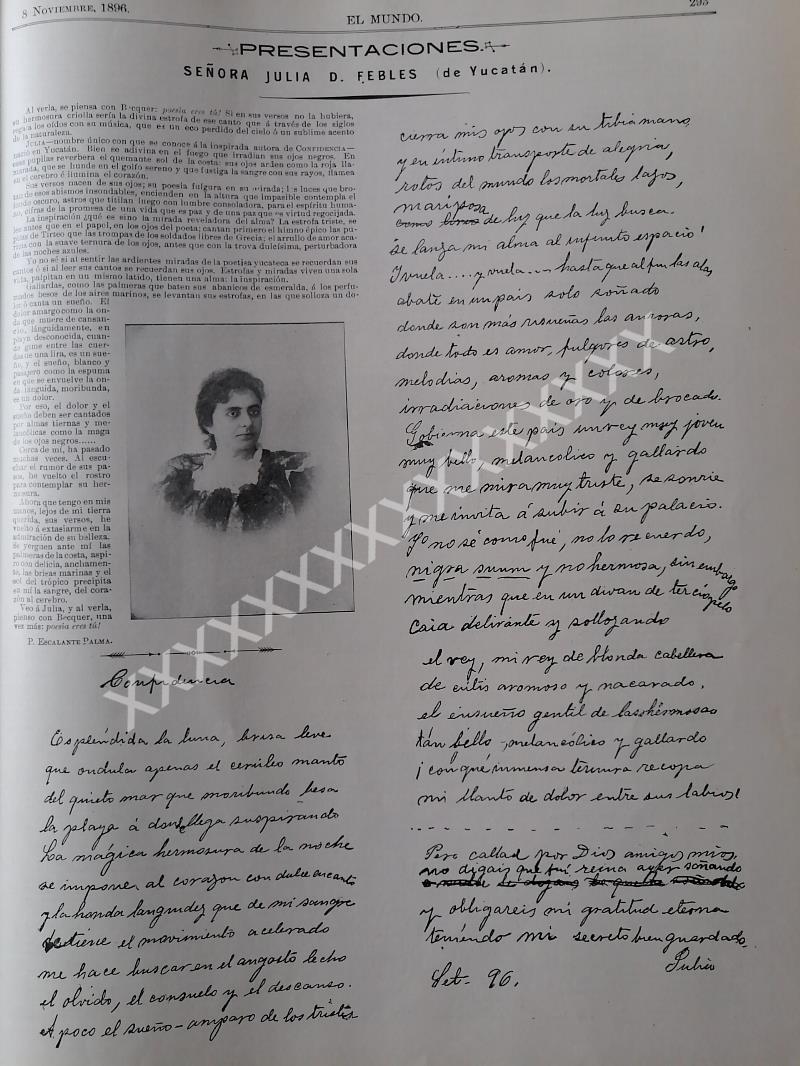 8 NOVIEMBRE, 1896.
EL MUNDO.
295
PRESENTACIONES.
SEÑORA JULIA D. FEBLES (de Yucatán).
Al verla, se piensa con Becquer: poesía eres tú! Si en sus versos no la hubiera,
su hermosura criolla sería la divina estrofa de ese canto que á través de los siglos
llega á los oídos con su música, que es un eco perdido del cielo ó un sublime acento
de la naturaleza.
JULIA—nombre único con que se conoce á la inspirada autora de CONFIDENCIA—
nació en Yucatán. Bien se adivina en el fuego que irradian sus ojos negros. En
sus pupilas reverbera el quemante sol de la costa: sus ojos arden como la roja lla-
marada, que se hunde en el golfo sereno y que fustiga la sangre con sus rayos, llamea
en el cerebro é ilumina el corazón.
Sus versos nacen de sus ojos; su poesía fulgura en su mirada; las luces que bro-
tan de esos abismos insondables, encienden en la altura que impasible contempla el
mundo oscuro, astros que titilan luego con lumbre consoladora, para el espíritu huma-
no, cifras de la promesa de una vida que es paz y de una paz que es virtud regocijada.
La inspiración ¿qué es sino la mirada reveladora del alma? La estrofa triste, se
lee antes que en el papel, en los ojos del poeta; cantan primero el himno épico las pupi-
las de Tirteo que las trompas de los soldados libres de Grecia; el arrullo de amor acari-
cia con la suave ternura de los ojos, antes que con la trova dulcísima, perturbadora
de las noches azules.
Yo no sé si al sentir las ardientes miradas de la poetisa yucateca se recuerdan sus
cantos ó si al leer sus cantos se recuerdan sus ojos. Estrofas y miradas viven una sola
vida, palpitan en un mismo latido, tienen una alma: la inspiración.
Gallardas, como las palmeras que baten sus abanicos de esmeralda, á los perfu-
mados besos de los aires marinos, se levantan sus estrofas, en las que solloza un do-
lor ó canta un sueño. El
dolor amargo como la on-
da que muere de cansan-
cio, lánguidamente, en
playa desconocida, cuan-
do gime entre las cuer-
das de una lira, es un sue-
ño, y el sueño, blanco y
pasajero como la espuma
en que se envuelve la on-
da lánguida, moribunda,
es un dolor.
Por eso, el dolor y el
sueño deben ser cantados
por almas tiernas y me-
lancólicas como la maga
de los ojos negros......
Cerca de mí, ha pasado
muchas veces. Al escu-
char el rumor de sus pa-
sos, he vuelto el rostro
para contemplar su her-
mosura.
Ahora que tengo en mis
manos, lejos de mi tierra
querida, sus versos, he
vuelto á extasiarme en la
admiración de su belleza.
Se yerguen ante mí las
palmeras de la costa, aspi-
ro con delicia, anchamen-
te, las brisas marinas y el
sol del trópico precipita
en mí la sangre, del cora-
zón al cerebro.
Veo á Julia, y al verla,
pienso con Becquer, una
vez más: poesía eres tú!
P. ESCALANTE PALMA.
Confidencia
Espléndida la luna, brisa leve
que ondula apenas el cerúleo manto
del quieto mar que moribundo besa
la playa á donde llega suspirando
La mágica hermosura de la noche
se impone al corazon con dulce encanto
y la honda languidez que de mi sangre
detiene el movimiento acelerado
me hace buscar en el angosto lecho
el olvido, el consuelo y el descanso.
A poco el sueño—amparo de los tristes
cierra mis ojos con su tibia mano
y en íntimo transporte de alegria,
rotos del mundo los mortales lazos,
mariposa
como de luz que la luz busca.
se lanza mi alma al infinito espacio!
I vuela.... y vuela... hasta que al fin las alas
abate en un pais solo soñado
donde son más risueñas las auroras,
donde todo es amor, fulgores de astro,
melodias, aromas y colores,
irradiaciones de oro y de brocado.
Gobierna este pais un rey muy joven
muy bello, melancólico y gallardo
que me mira muy triste, se sonrie
y me invita á subir á su palacio.
Yo no sé como fué, no lo recuerdo,
nigra suum y no hermosa, sin embargo
mientras que en un divan de terciopelo
caia delirante y sollozando
el rey, mi rey de blonda cabellera
de cutis aromoso y nacarado,
el ensueño gentil de las hermosas
tán bello, melancólico y gallardo
¡con qué inmensa ternura recogia
mi llanto de dolor entre sus labios!
Pero callad por Dios amigos mios,
no digais que fui reina ayer soñando
y obligareis mi gratitud eterna
teniendo mi secreto bien guardado.
Julia
Set. 96.
XXXXXXXXXXXXXXXXXXXX